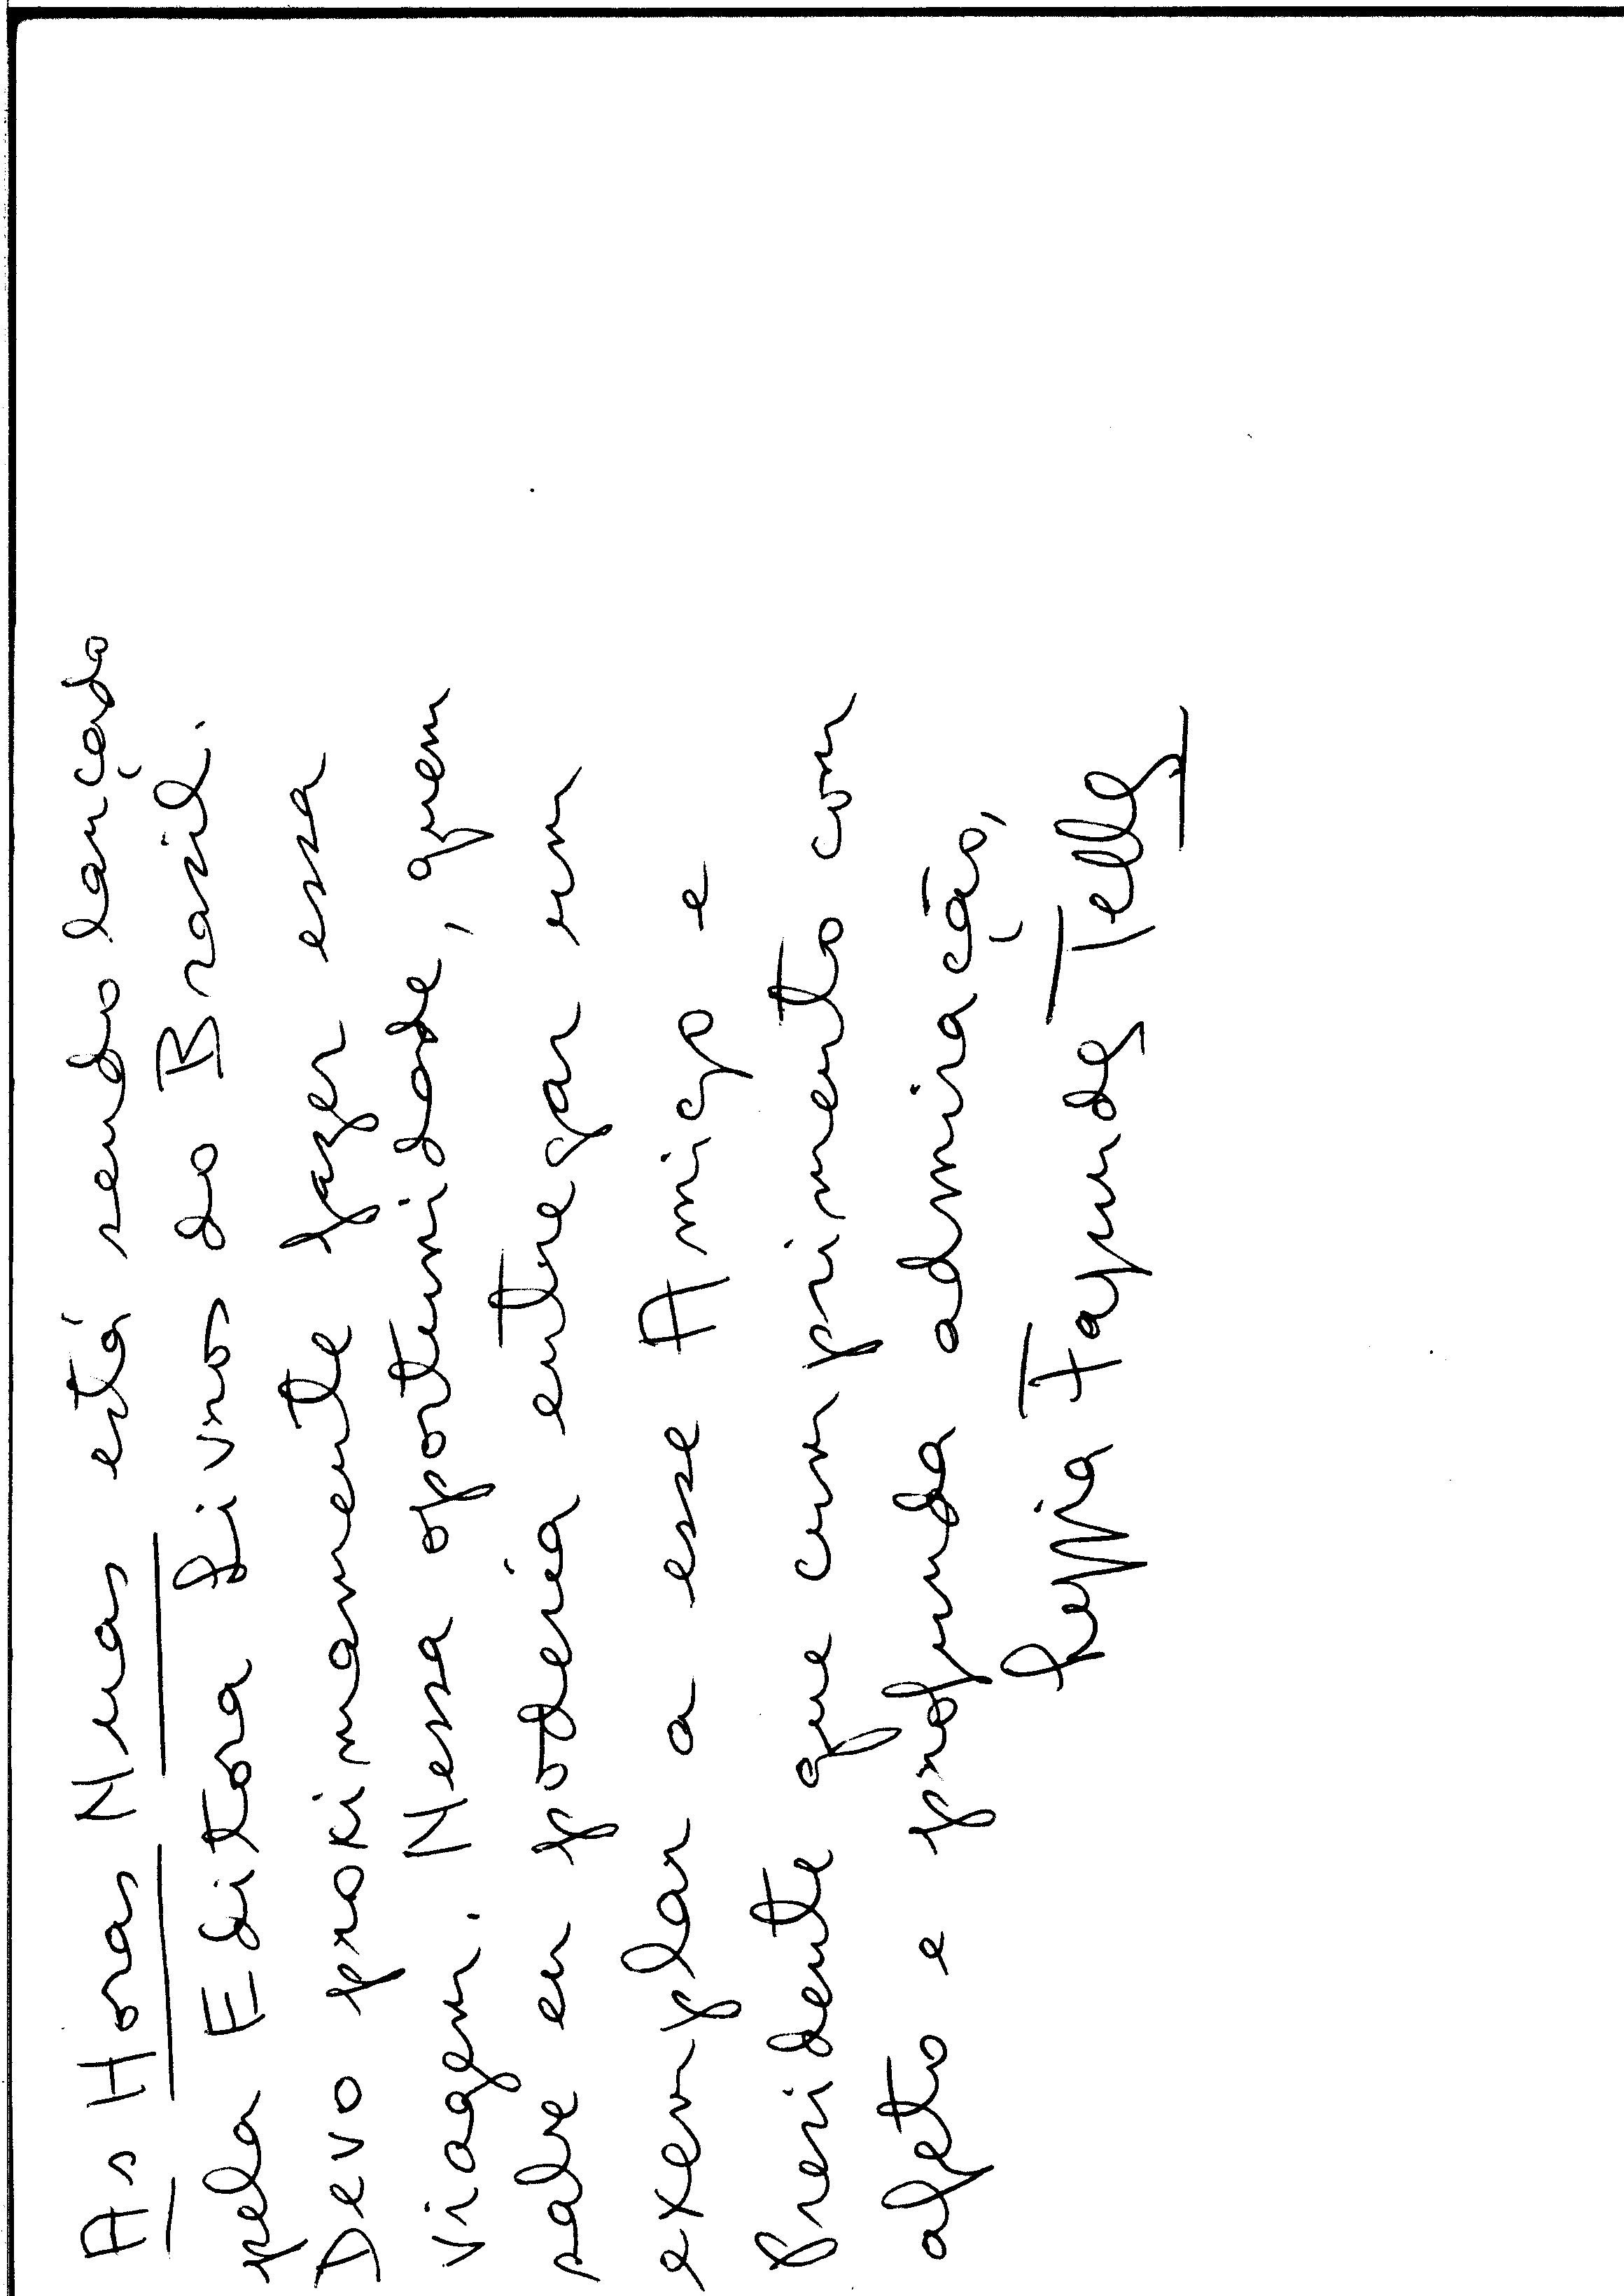 As Horas Nuas está sendo lançado
pela Editora Livros do Brasil.
Devo proximamente fazer essa
viagem. Nessa oportunidade, quem
sabe eu poderia entregar um
exemplar a esse Amigo e
Presidente que cumprimento com
afeto e profunda admiração,
Lygia Fagundes Telles